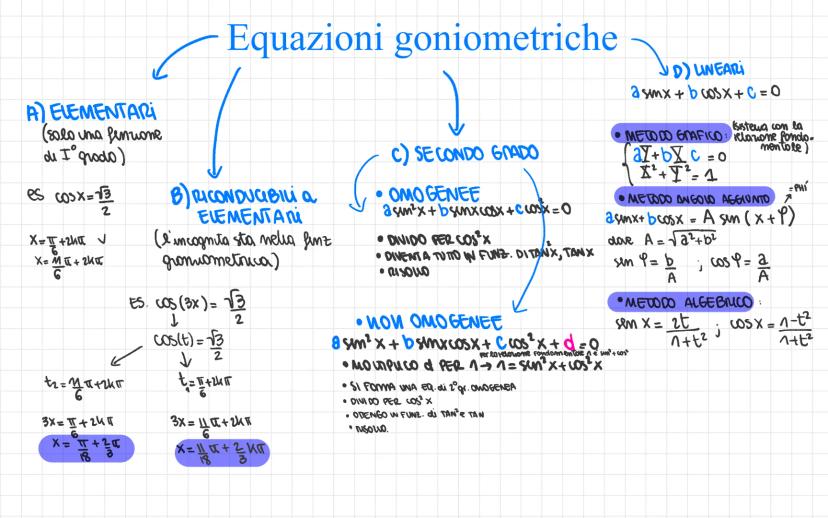 Equazioni goniometriche
A) ELEMENTARI
(solo una funzione
di I° grado)
es cosx = √3/2
x = π/6 + 2kπ ∨
x = 11/6 π + 2kπ
B) RICONDUCIBILI a
ELEMENTARI
(l'incognita sta nella funz
goniometrica)
ES. cos(3x) = √3/2
↓
cos(t) = √3/2
t₂ = 11/6 π + 2kπ
3x = π/6 + 2kπ
x = π/18 + 2/3 π
t₁ = π/6 + 2kπ
↓
3x = 11/6 π + 2kπ
x = 11/18 π + 2/3 kπ
C) SECONDO GRADO
• OMOGENEE
a sin²x + b sinxcosx + c cos²x = 0
• DIVIDO PER COS²X
• DIVENTA TUTTO IN FUNZ. DI TAN²X, TANX
• RISOLVO
• NON OMOGENEE
a sin²x + b sinxcosx + c cos²x + d = 0
per la relazione fondamentale 1 è sin²+cos²
• MOLTIPLICO d PER 1 → 1 = sin²x + cos²x
• SI FORMA UNA EQ. di 2° gr. OMOGENEA
• DIVIDO PER COS²X
• OTTENGO IN FUNZ. di TAN² e TAN
• RISOLVO.
D) LINEARI
a sinx + b cosx + c = 0
• METODO GRAFICO: (sistema con la
relazione fondamentale)
{ aY + bX c = 0
X² + Y² = 1
• METODO ANGOLO AGGIUNTO
= PHI
a sinx + b cosx = A sin (x + φ)
dove A = √a²+b²
sen φ = b/A ; cos φ = a/A
• METODO ALGEBRICO :
sen x = 2t/1+t² ; cosx = 1-t²/1+t²